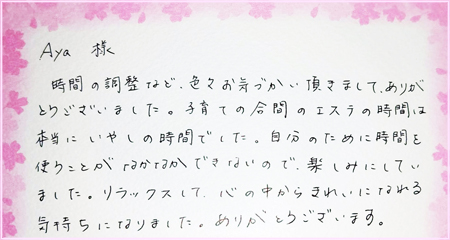 Aya 様
時間の調整など、色々お気づかい頂きまして、ありが
とうございました。子育ての合間のエステの時間は
本当にいやしの時間でした。自分のために時間を
使うことがなかなかできないので、楽しみにしてい
ました。リラックスして、心の中からきれいになれる
気持ちになりました。ありがとうございます。